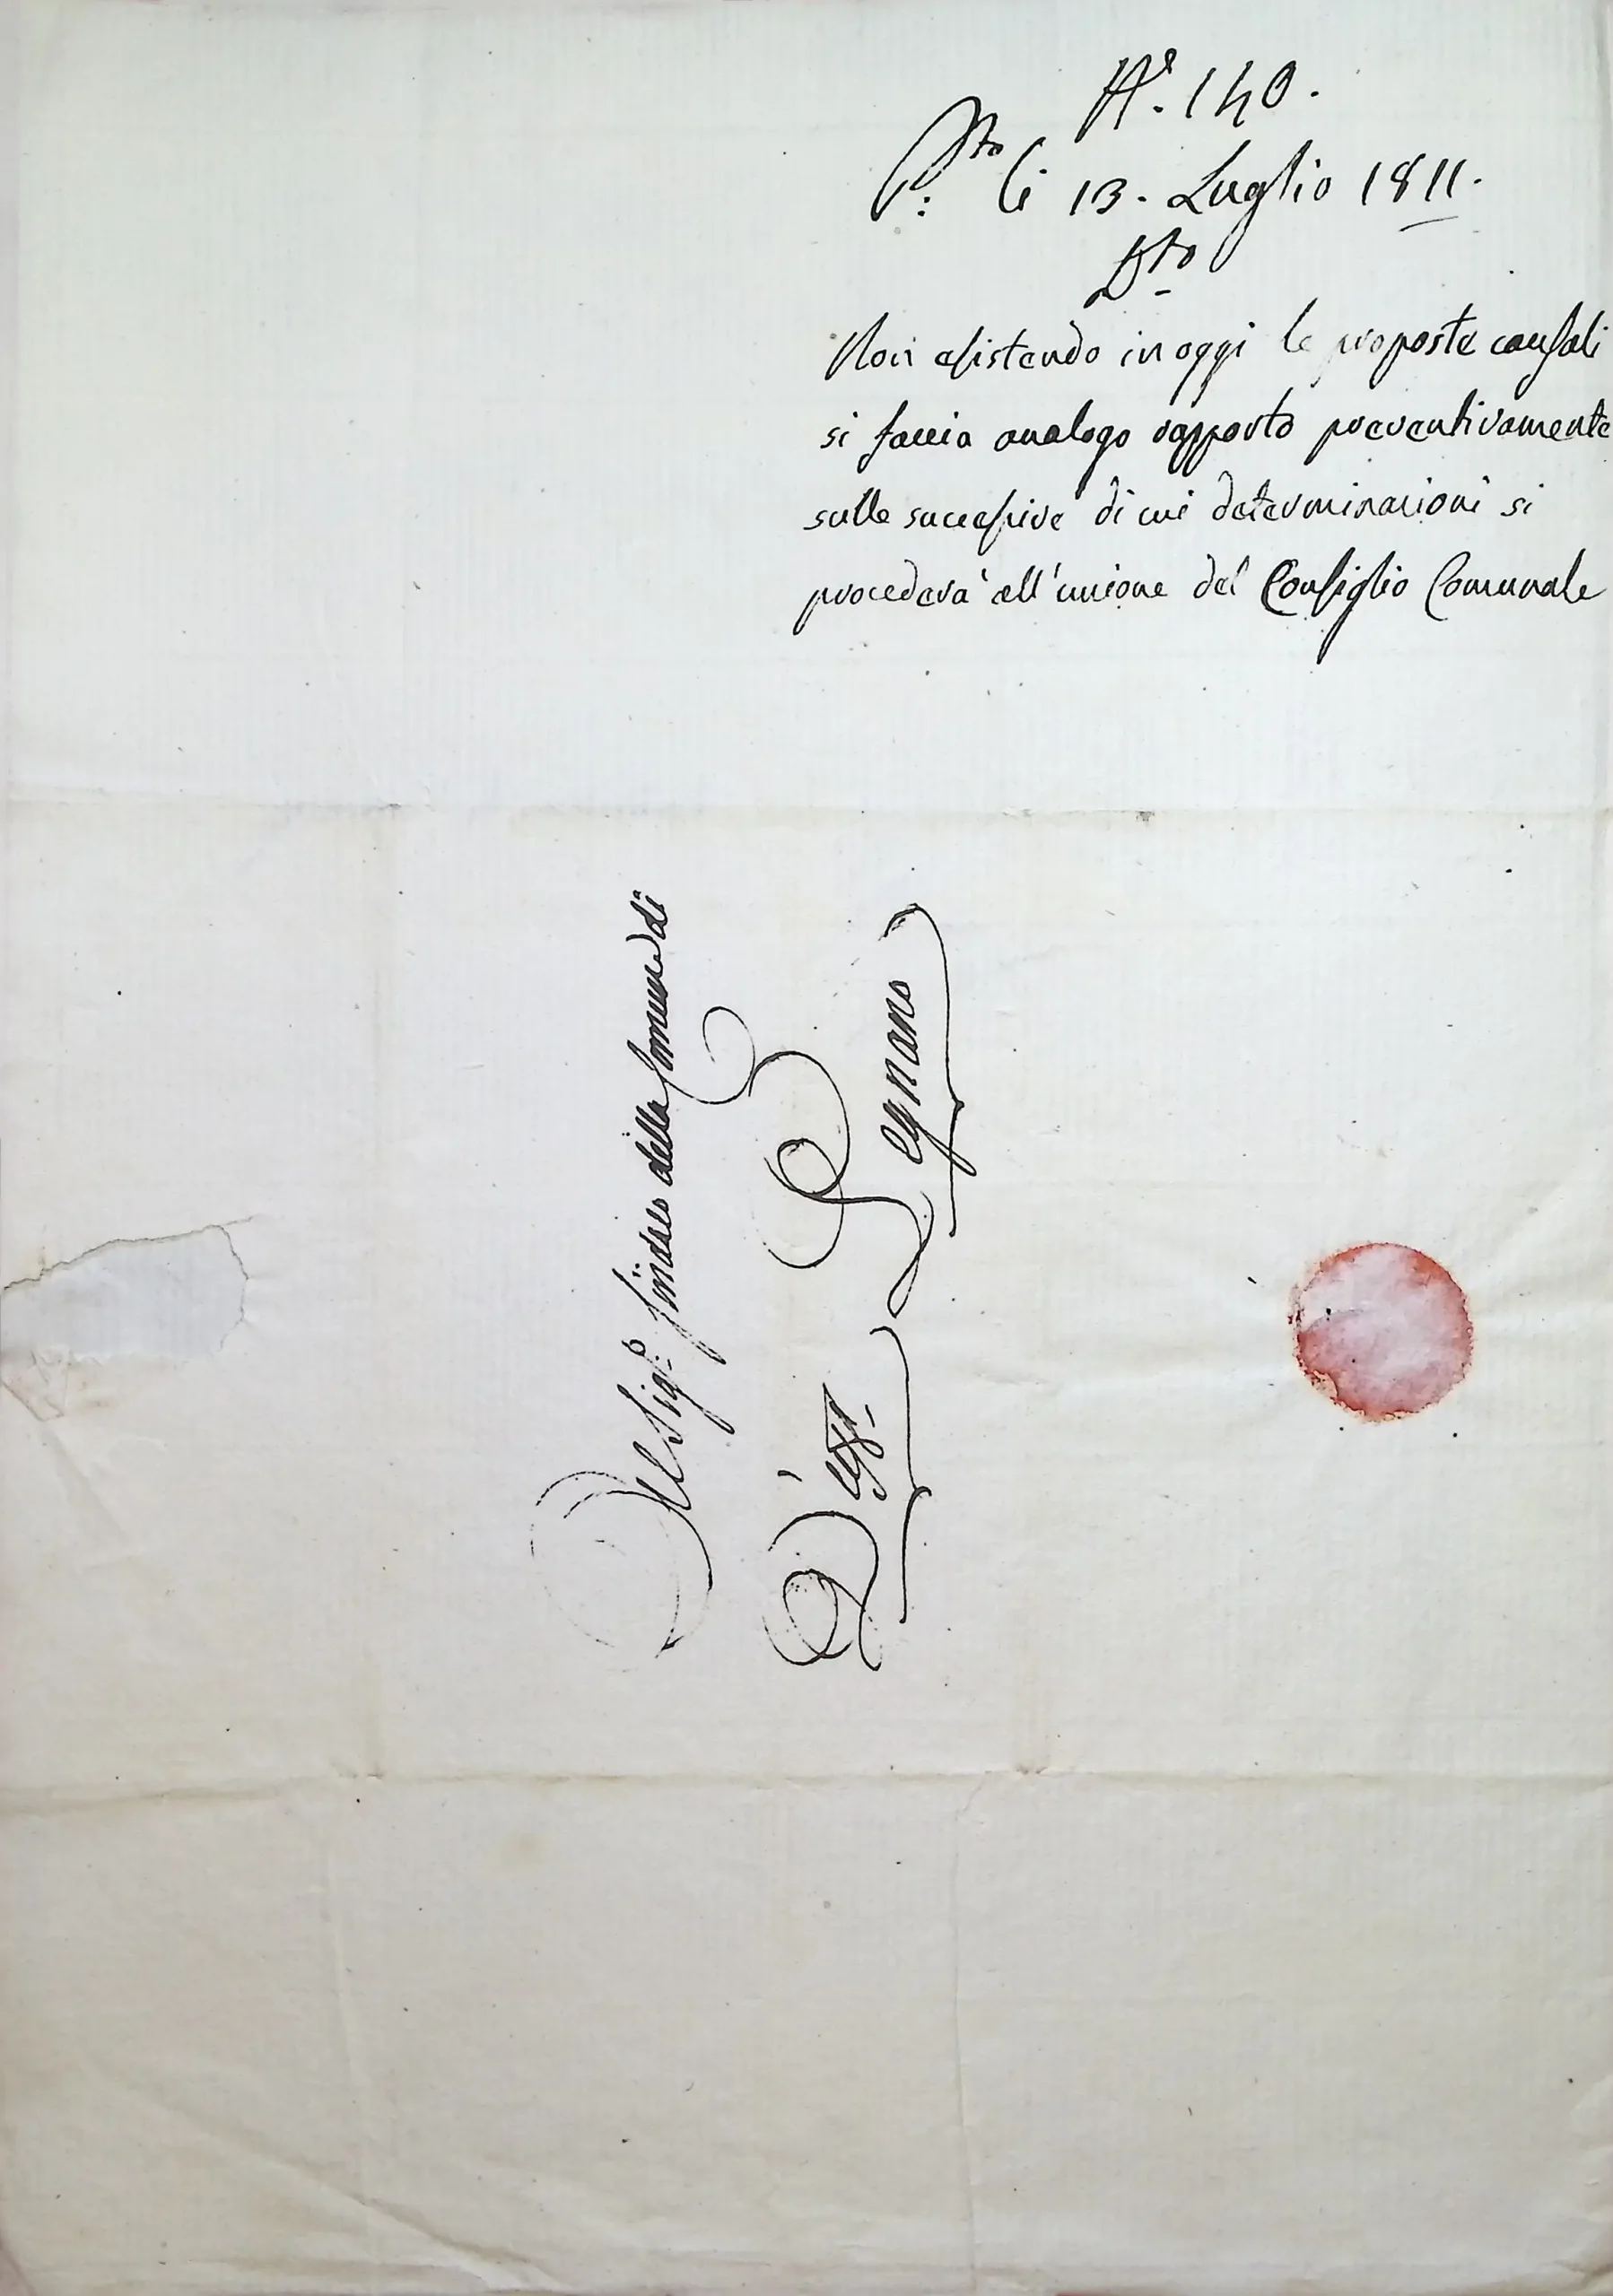 N.º 140.
P.to li 13. Luglio 1811.
D.to
Non esistendo in oggi le proposte causali
si faccia analogo rapporto preventivamente
sulle successive di cui determinazioni si
procederà all'unione del Consiglio Comunale
Al Sig.º Sindaco della Comune di
Legnano